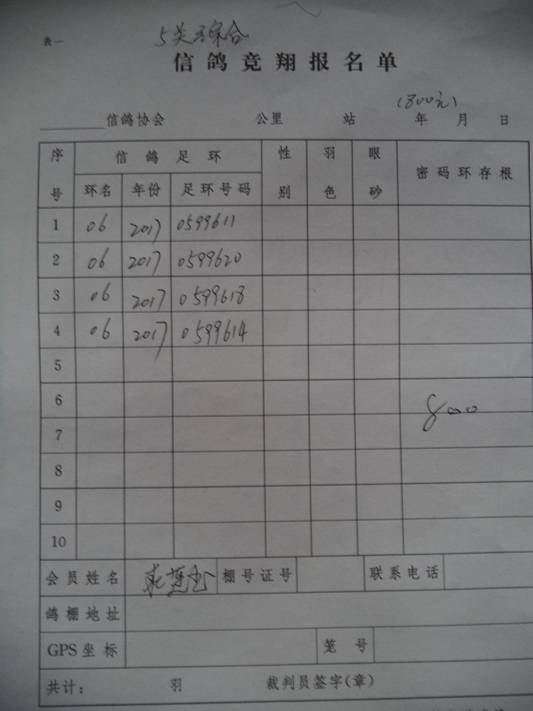 表一
5关 综合
信鸽竞翔报名单
(800元)
信鸽协会 公里 站 年 月 日
序号 信鸽足环 性别 羽色 眼砂 密码环存根
环名 年份 足环号码
1 06 2017 0599611
2 06 2017 0599620
3 06 2017 0599618
4 06 2017 0599614
5
6
800
7
8
9
10
会员姓名 棚号证号 联系电话
鸽棚地址
GPS坐标 笼号
共计: 羽 裁判员签字(章)